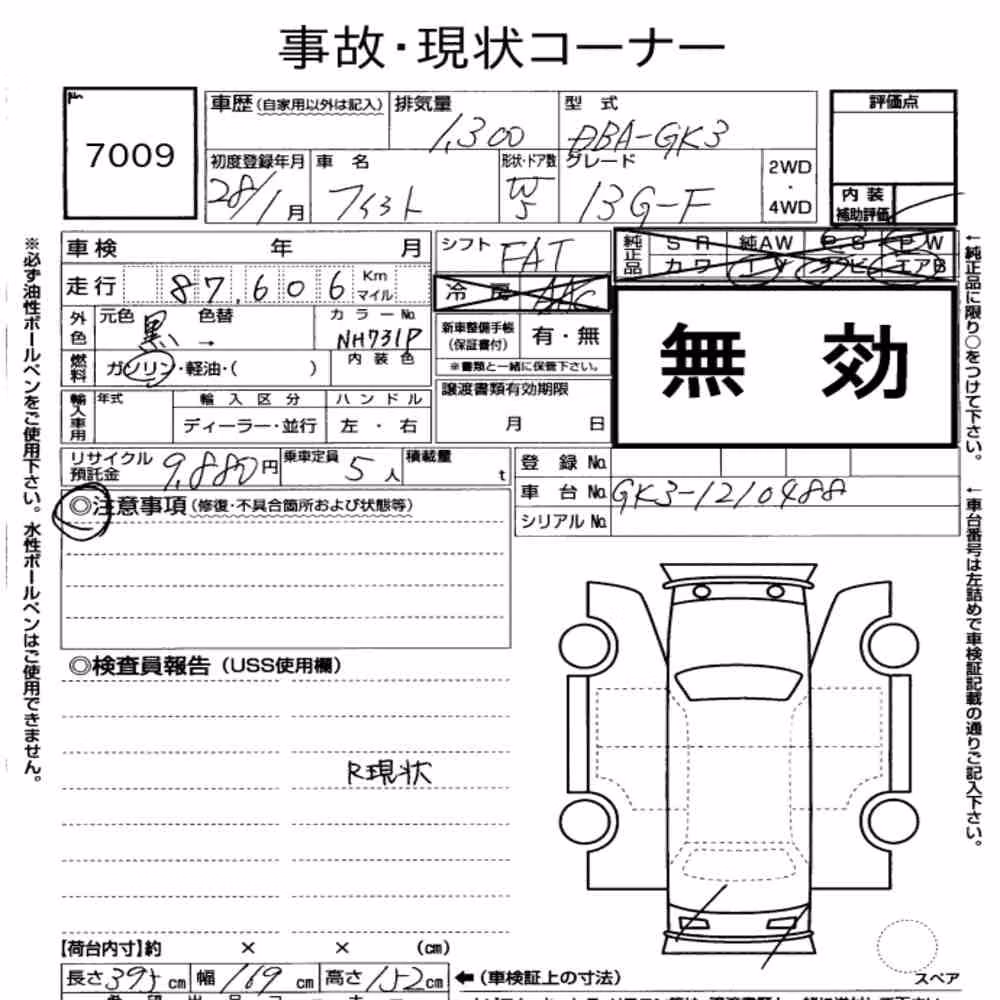 事故・現状コーナー
7009
車歴(自家用以外は記入) 排気量 型式 評価点
1,300 DBA-GK3
初度登録年月 車名 形状・ドア数 グレード 2WD・4WD
28/1月 フィット W 5 13G-F
内装補助評価
車検 年 月 シフト FAT
純正品 SR 純AW PS PW
カワ エアB
走行 87,606 Km マイル
冷房 AAC
外色 元色 色替 カラーNo.
黒 → NH731P
新車整備手帳(保証書付) 有・無
内装色 ※書類と一緒に保管下さい。
燃料 ガソリン・軽油・( )
無効
譲渡書類有効期限
月 日
輸入車用 年式 輸入区分 ハンドル
ディーラー・並行 左・右
リサイクル預託金 9,880円 乗車定員 5人 積載量 t
登録No.
車台No. GK3-1210488
シリアルNo.
◎注意事項(修復・不具合箇所および状態等)
◎検査員報告(USS使用欄)
R現状
【荷台内寸】約 × × (cm)
長さ395cm 幅169cm 高さ152cm ←(車検証上の寸法)
スペア
※必ず油性ボールペンをご使用下さい。水性ボールペンはご使用できません。
←純正品に限り○をつけて下さい。
←車台番号は左詰めで車検証記載の通りご記入下さい。